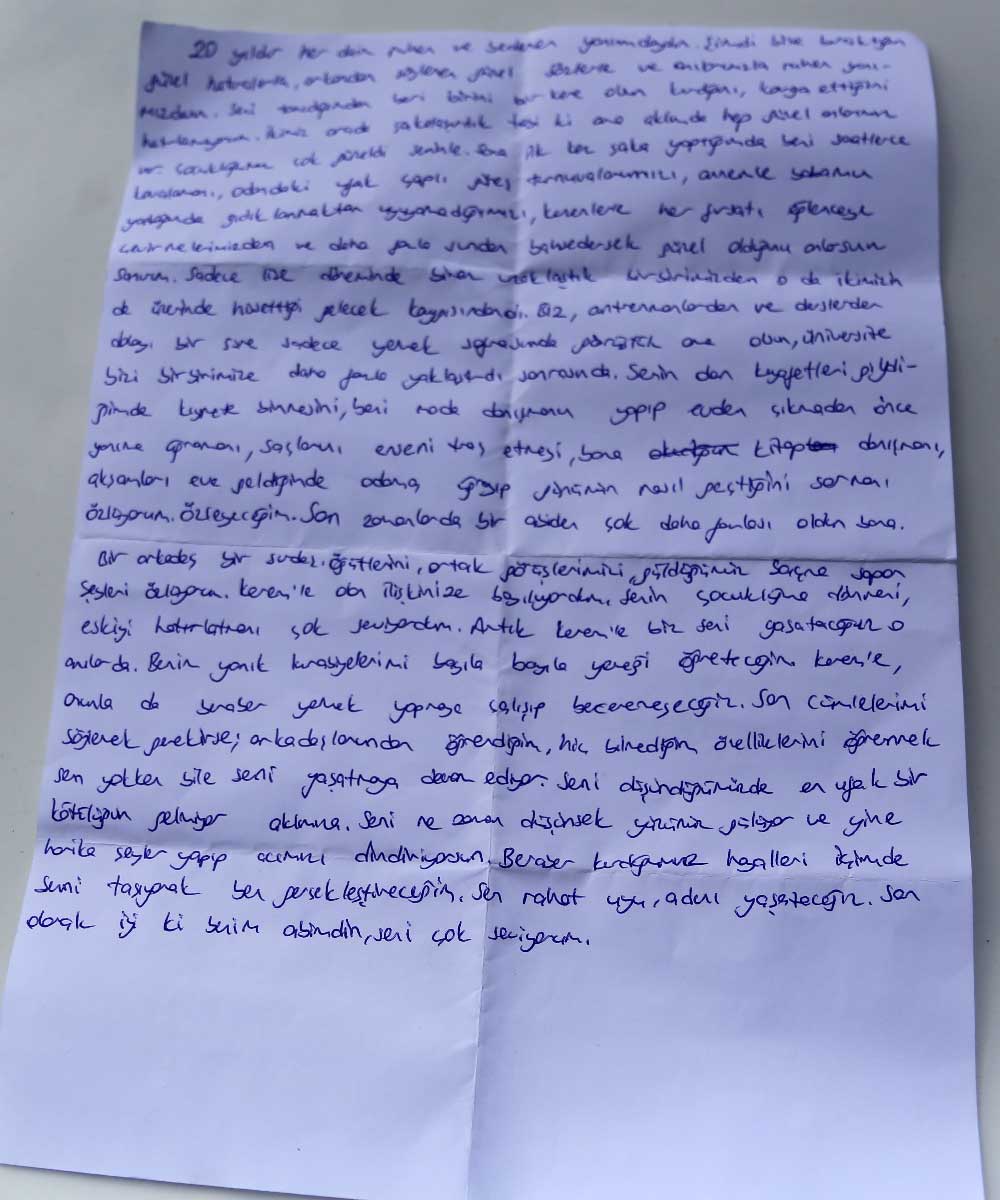 20 yıldır her daim ruhen ve bedenen yanımdaydın. Şimdi bize bıraktığın
güzel hatıralarla, arkandan söylenen güzel sözlerle ve ruhen yanı-
mızdasın. Seni tanıdığımdan beri birini bir kere olsun kırdığını, kavga ettiğini
hatırlamıyorum. İkimiz arada şakalaşırdık tabi ki ama aklımda hep güzel anlarımız
var. Çocukluğum çok güzeldi seninle. Sana ilk kez şaka yaptığımda beni saatlerce
kovalaman, odandaki ufak çaplı güreş turnuvalarımızı, annemle babamın
yatağında gıdıklanmaktan uyuyamadığımızı, keremlerle her fırsatı eğlenceye
çevirmelerimizden ve daha fazla şundan bahsedersek güzel olduğunu anlarsın
sanırım. Sadece lise döneminde biraz uzaklaştık birbirimizden o da ikimizin
de üzerinde hissettiği gelecek kaygısındandı. Biz, antrenmanlardan ve derslerden
dolayı bir süre sadece yemek sofrasında görüştük ama olsun, üniversite
bizi birbirimize daha fazla yaklaştırdı sonrasında. Senin olan kıyafetleri giydi-
ğimde kıymete binmesini, beni moda danışmanı yapıp evden çıkmadan önce
yanıma uğramanı, saçlarını enseni traş etmeyi, bana kitap danışmanı,
akşamları eve geldiğinde odama girip günümün nasıl geçtiğini sormanı
özlüyorum. Özleyeceğim. Son zamanlarda bir abiden çok daha fazlası oldun bana.
Bir arkadaş bir sırdaş. Öğütlerini, ortak görüşlerimizi, güldüğümüz saçma sapan
şeyleri özlüyorum. Kerem'le olan ilişkinize bayılıyordum, senin çocukluğuna dönmeni,
eskiyi hatırlatmanı çok seviyordum. Artık kerem'le biz seni yaşatacağız o
anılarda. Benim yanık kurabiyelerimi bayıla bayıla yemeği öğreteceğim kerem'e,
onunla da beraber yemek yapmaya çalışıp beceremeyeceğiz. Son cümlelerimi
söylemek gerekirse; arkadaşlarından öğrendiğim, hiç bilmediğim özelliklerini öğrenmek
sen yokken bile seni yaşatmaya devam ediyor. Seni düşündüğümüzde en ufak bir
kötülüğün gelmiyor aklımıza. Seni ne zaman düşünsek yüzümüz gülüyor ve yine
harika şeyler yapıp acımızı dindiriyorsun. Beraber kurduğumuz hayalleri içimde
seni taşıyarak ben gerçekleştireceğim. Sen rahat uyu, adını yaşatacağız. Son
olarak iyi ki benim abimdin, seni çok seviyorum.